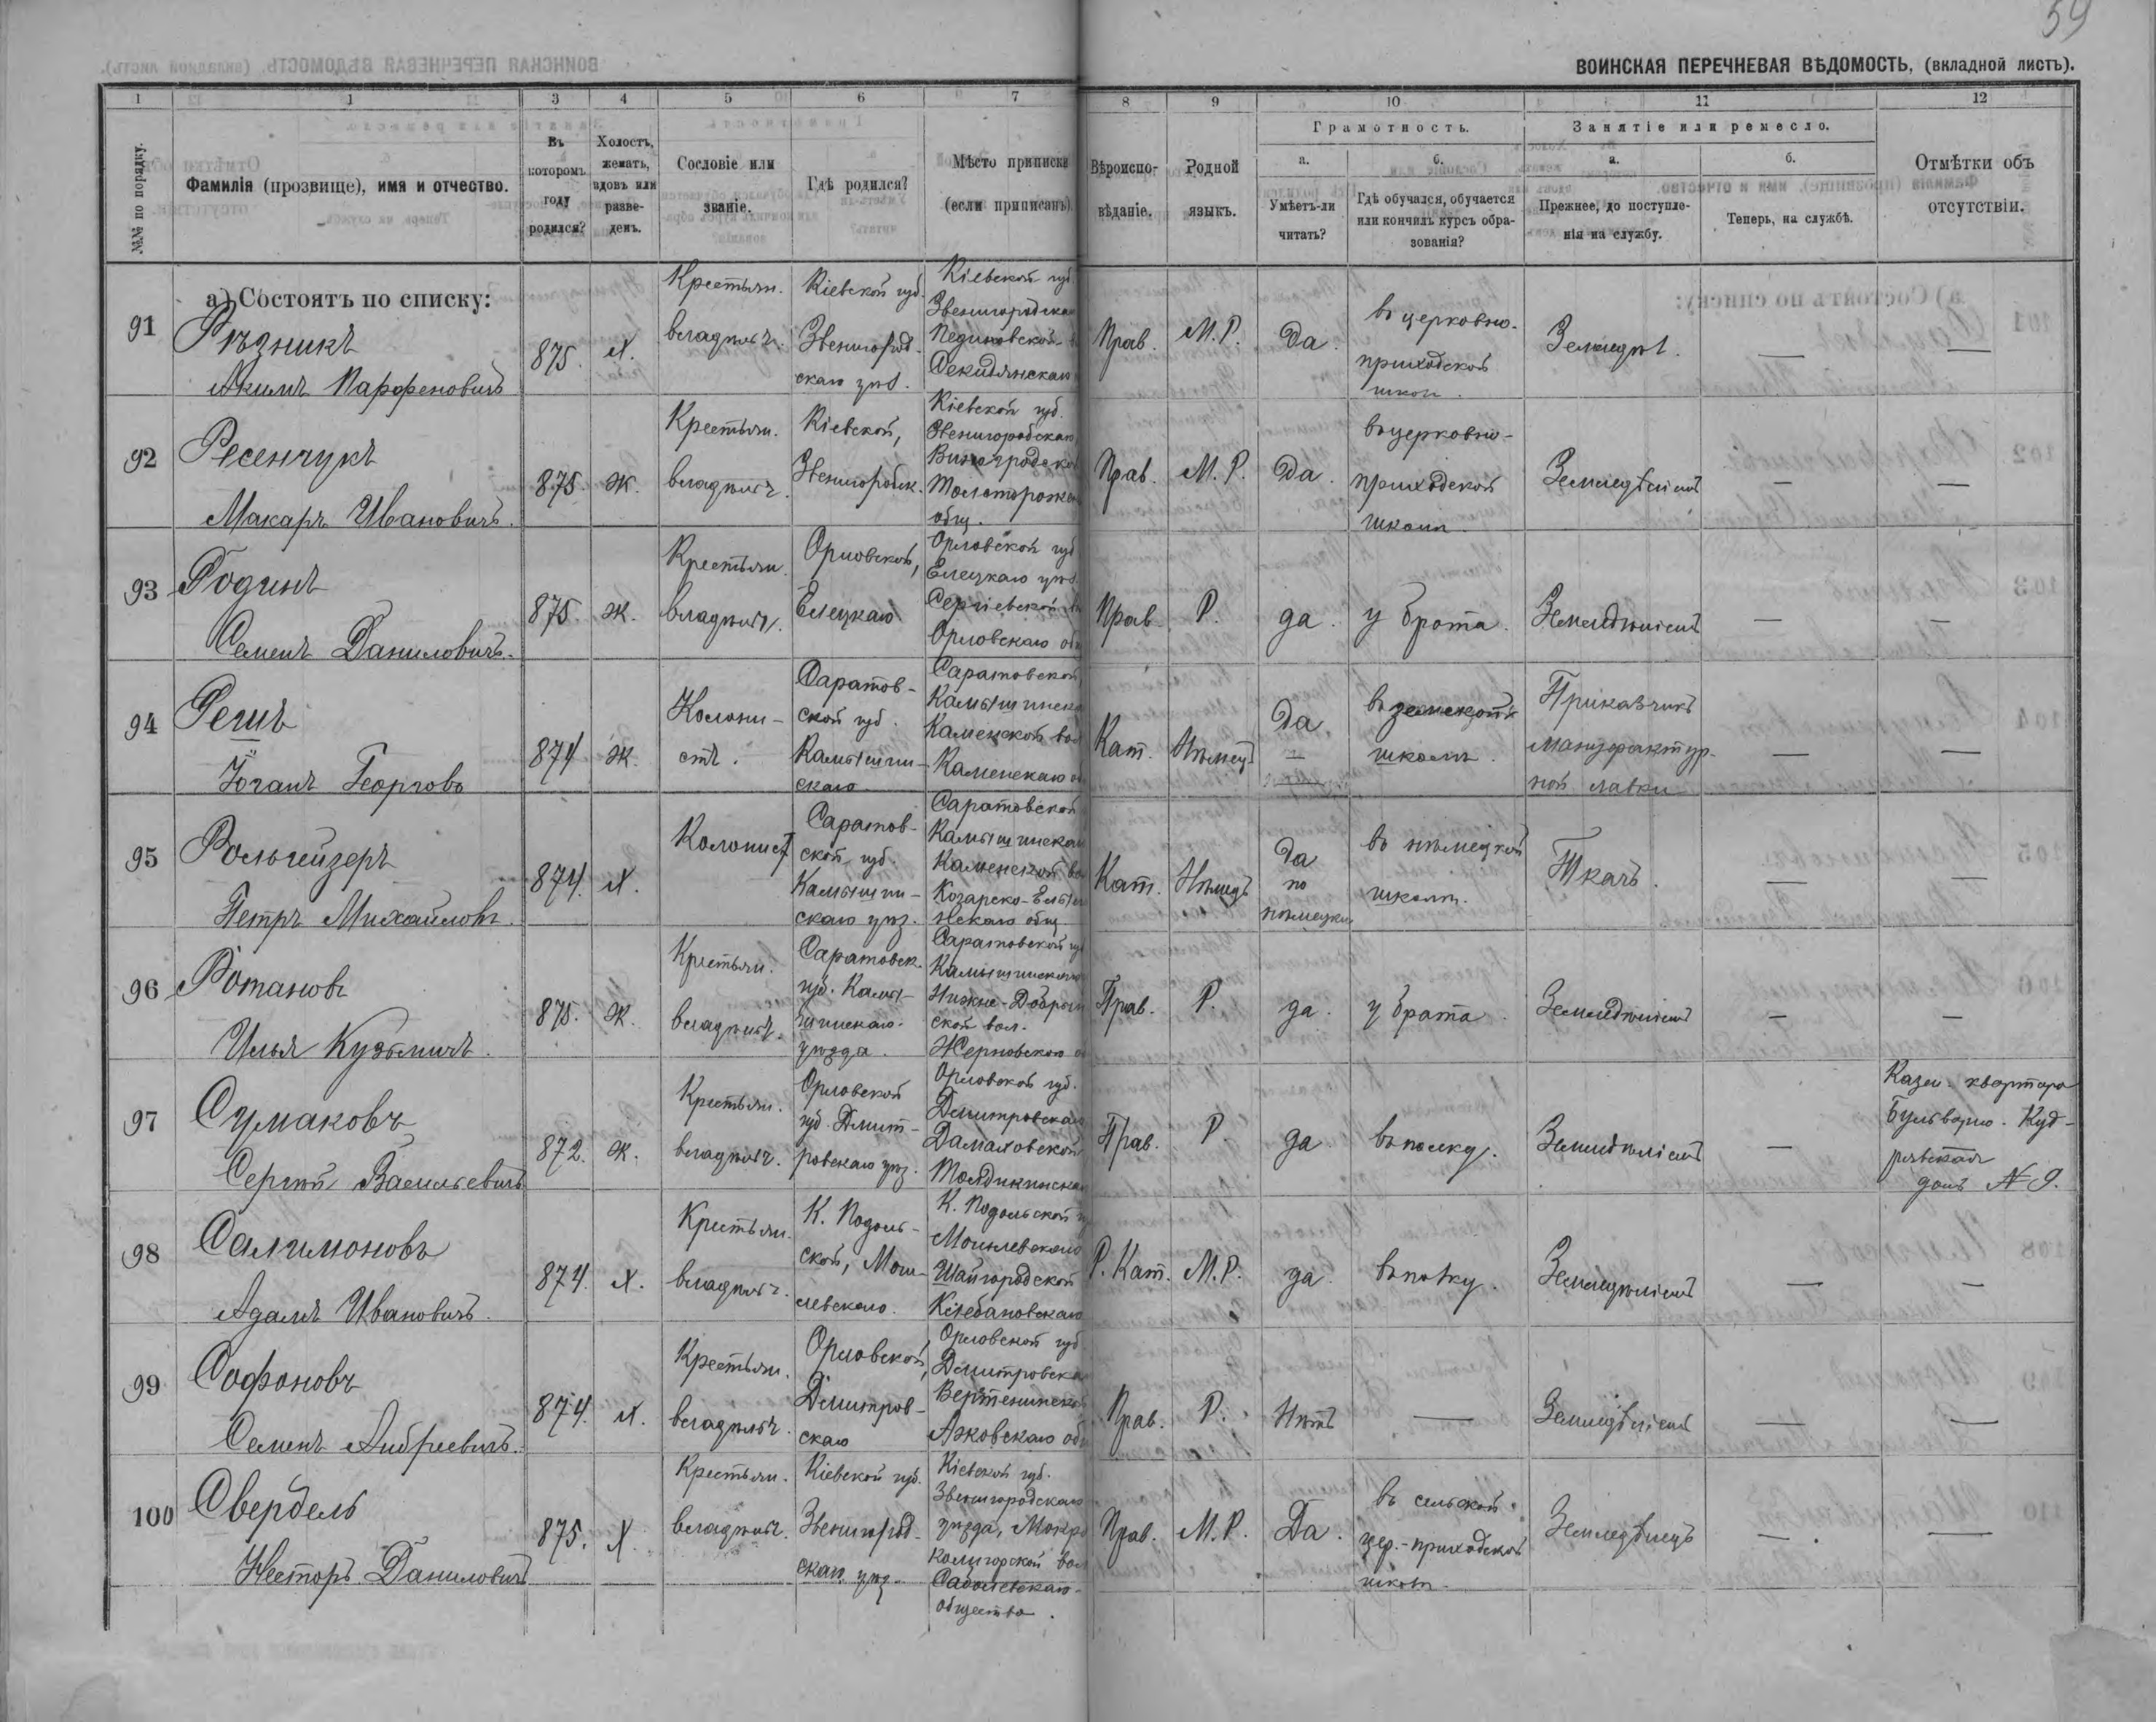 59
ВОИНСКАЯ ПЕРЕЧНЕВАЯ ВѢДОМОСТЬ, (вкладной листъ).
1 1 3 4 5 6 7 8 9 10 11 12
№№ по порядку.
Фамилія (прозвище), имя и отчество.
Въ которомъ году родился?
Холостъ, женатъ, вдовъ или разведенъ.
Сословіе или званіе.
Гдѣ родился?
Мѣсто приписки (если приписанъ)
Вѣроисповѣданіе.
Родной языкъ.
Грамотность.
а. Умѣетъ-ли читать?
б. Гдѣ обучался, обучается или кончилъ курсъ образованія?
Занятіе или ремесло.
а. Прежнее, до поступленія на службу.
б. Теперь, на службѣ.
Отмѣтки объ отсутствіи.
а) Состоятъ по списку:
91 Рѣзникъ
Акимъ Парфеновичъ
875. Х.
Крестьян. владѣлч.
Кіевской губ. Звенигородскаго уѣз.
Кіевской губ. Звенигородскаго
Прав. М. Р. Да.
въ церковно-приходской школ.
Земледѣл. — —
92 Ресенчукъ
Макаръ Ивановичъ.
875. Ж.
Крестьян. владѣлч.
Кіевской, Звенигородск.
Кіевской губ. Звенигородскаго
общ.
Прав. М. Р. Да.
въ церковно-приходской школѣ
Земледѣліемъ — —
93 Родинъ
Семенъ Даниловичъ.
875. Ж.
Крестьян. владѣлч.
Орловской, Елецкаго
Орловской губ Елецкаго уѣз. Сергіевской Орловскаго общ
Прав. Р. да. у брата.
Земледѣліемъ — —
94 Решъ
Іоганъ Георговъ
874 Ж.
Колонистъ.
Саратовской губ. Камышинскаго
Саратовской, Камышинска Каменской вол Каменскаго
Кат. Нѣмец Да.
въ земской школѣ.
Приказчикъ мануфактурной лавки — —
95 Рольгейзеръ
Петръ Михайловъ.
874. Х.
Колонист
Саратовской губ. Камышинскаго уѣз.
Саратовской Камышинскаго Каменской
общ
Кат. Нѣмецъ
Да по нѣмецки
въ нѣмецкой школѣ.
Ткачъ. — —
96 Романовъ
Илья Кузьмичъ.
875. Ж.
Крестьян. владѣлч.
Саратовск. губ. Камышинскаго уѣзда.
Саратовской губ Камышинскаго Нижне-Добринской вол. Жерновскаго
Прав. Р. да. у брата.
Земледѣліемъ — —
97 Сумаковъ
Сергѣй Васильевичъ
872. Ж.
Крестьян. владѣлч.
Орловской губ. Дмитровскаго уѣз.
Орловской губ. Дмитровскаго
Прав. Р. да. въ полку.
Земледѣліемъ —
Казен. квартира
Бульварно. Кудрявская
домъ № 9.
98 Салимоновъ
Адамъ Ивановичъ.
874. Х.
Крестьян. владѣлч.
К. Подольской, Могилевскаго.
К. Подольской Могилевскаго Шайгородской
Р. Кат. М. Р. да. въ полку.
Земледѣліемъ — —
99 Софоновъ
Семенъ Андреевичъ.
874. Х.
Крестьян. владѣлч.
Орловской, Дмитровскаго
Орловской губ Дмитровска
общ
Прав. Р. Нѣтъ —
Земледѣліемъ — —
100 Свердель
Несторъ Даниловичъ
875. Х.
Крестьян. владѣлч.
Кіевской губ. Звенигородскаго уѣз.
Кіевской губ. Звенигородскаго уѣзда, Мокро Калигорской вол
общества.
Прав. М. Р. Да.
въ сельской цер.-приходской школѣ.
Земледѣлецъ — —